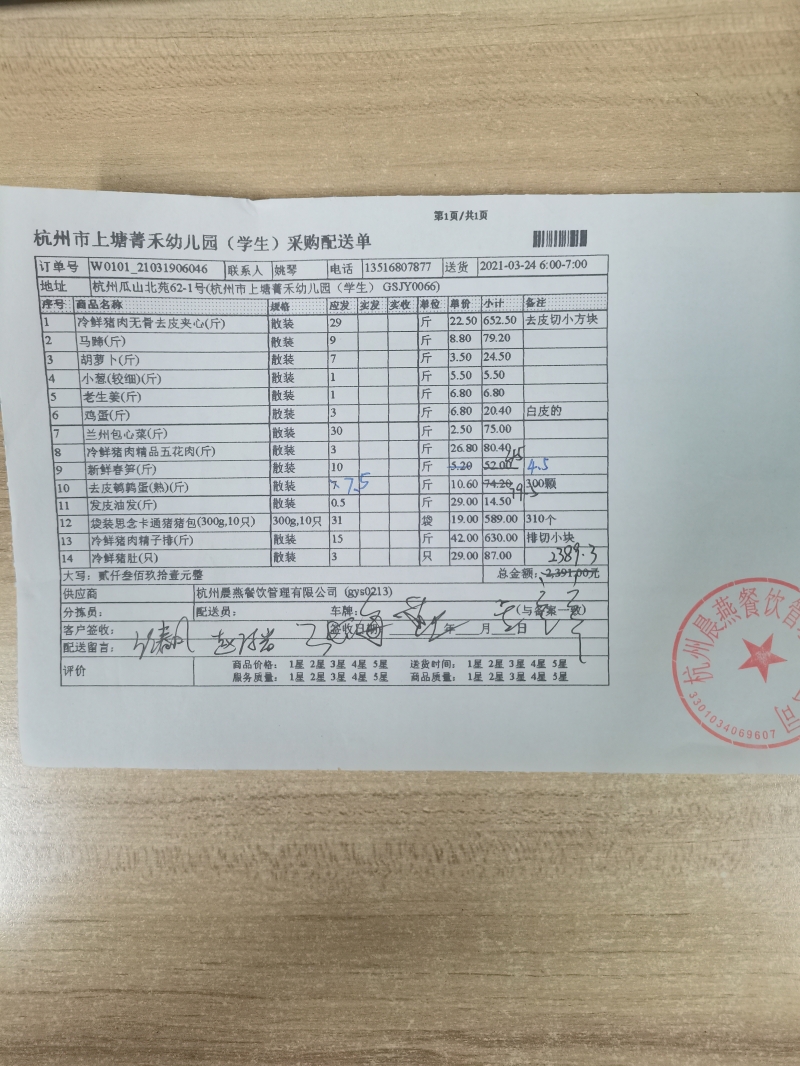 第1页/共1页
杭州市上塘菁禾幼儿园（学生）采购配送单
订单号 W0101_21031906046 联系人 姚琴 电话 13516807877 送货 2021-03-24 6:00-7:00
地址 杭州瓜山北苑62-1号(杭州市上塘菁禾幼儿园（学生）GSJY0066)
序号 商品名称 规格 应发 实发 实收 单位 单价 小计 备注
1 冷鲜猪肉无骨去皮夹心(斤) 散装 29 斤 22.50 652.50 去皮切小方块
2 马蹄(斤) 散装 9 斤 8.80 79.20
3 胡萝卜(斤) 散装 7 斤 3.50 24.50
4 小葱(较细)(斤) 散装 1 斤 5.50 5.50
5 老生姜(斤) 散装 1 斤 6.80 6.80
6 鸡蛋(斤) 散装 3 斤 6.80 20.40 白皮的
7 兰州包心菜(斤) 散装 30 斤 2.50 75.00
8 冷鲜猪肉精品五花肉(斤) 散装 3 斤 26.80 80.40
9 新鲜春笋(斤) 散装 10 斤 5.20 52.00 4.5
10 去皮鹌鹑蛋(熟)(斤) 散装 7 7.5 斤 10.60 74.20 79.5 300颗
11 发皮油发(斤) 散装 0.5 斤 29.00 14.50
12 袋装思念卡通猪猪包(300g,10只) 300g,10只 31 袋 19.00 589.00 310个
13 冷鲜猪肉精子排(斤) 散装 15 斤 42.00 630.00 排切小块
14 冷鲜猪肚(只) 散装 3 只 29.00 87.00
2389.3
大写：贰仟叁佰玖拾壹元整 总金额：2,391.00元
供应商 杭州晨燕餐饮管理有限公司 (gys0213)
分拣员： 配送员： 车牌： (与备案一致)
客户签收： 签收日期 年 月 日
配送留言：
评价 商品价格： 1星 2星 3星 4星 5星 送货时间： 1星 2星 3星 4星 5星
服务质量： 1星 2星 3星 4星 5星 商品质量： 1星 2星 3星 4星 5星
杭州晨燕餐饮管
司
3301034069607